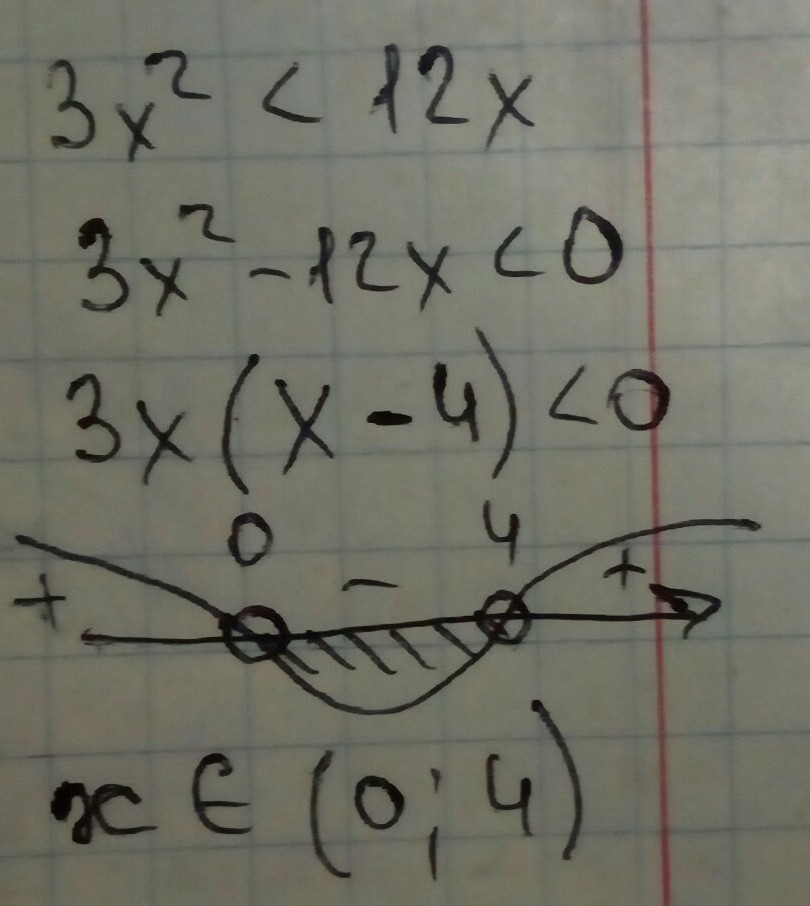 3x² < 12x
3x² - 12x < 0
3x(x - 4) < 0
0 4
+ - +
x ∈ (0; 4)